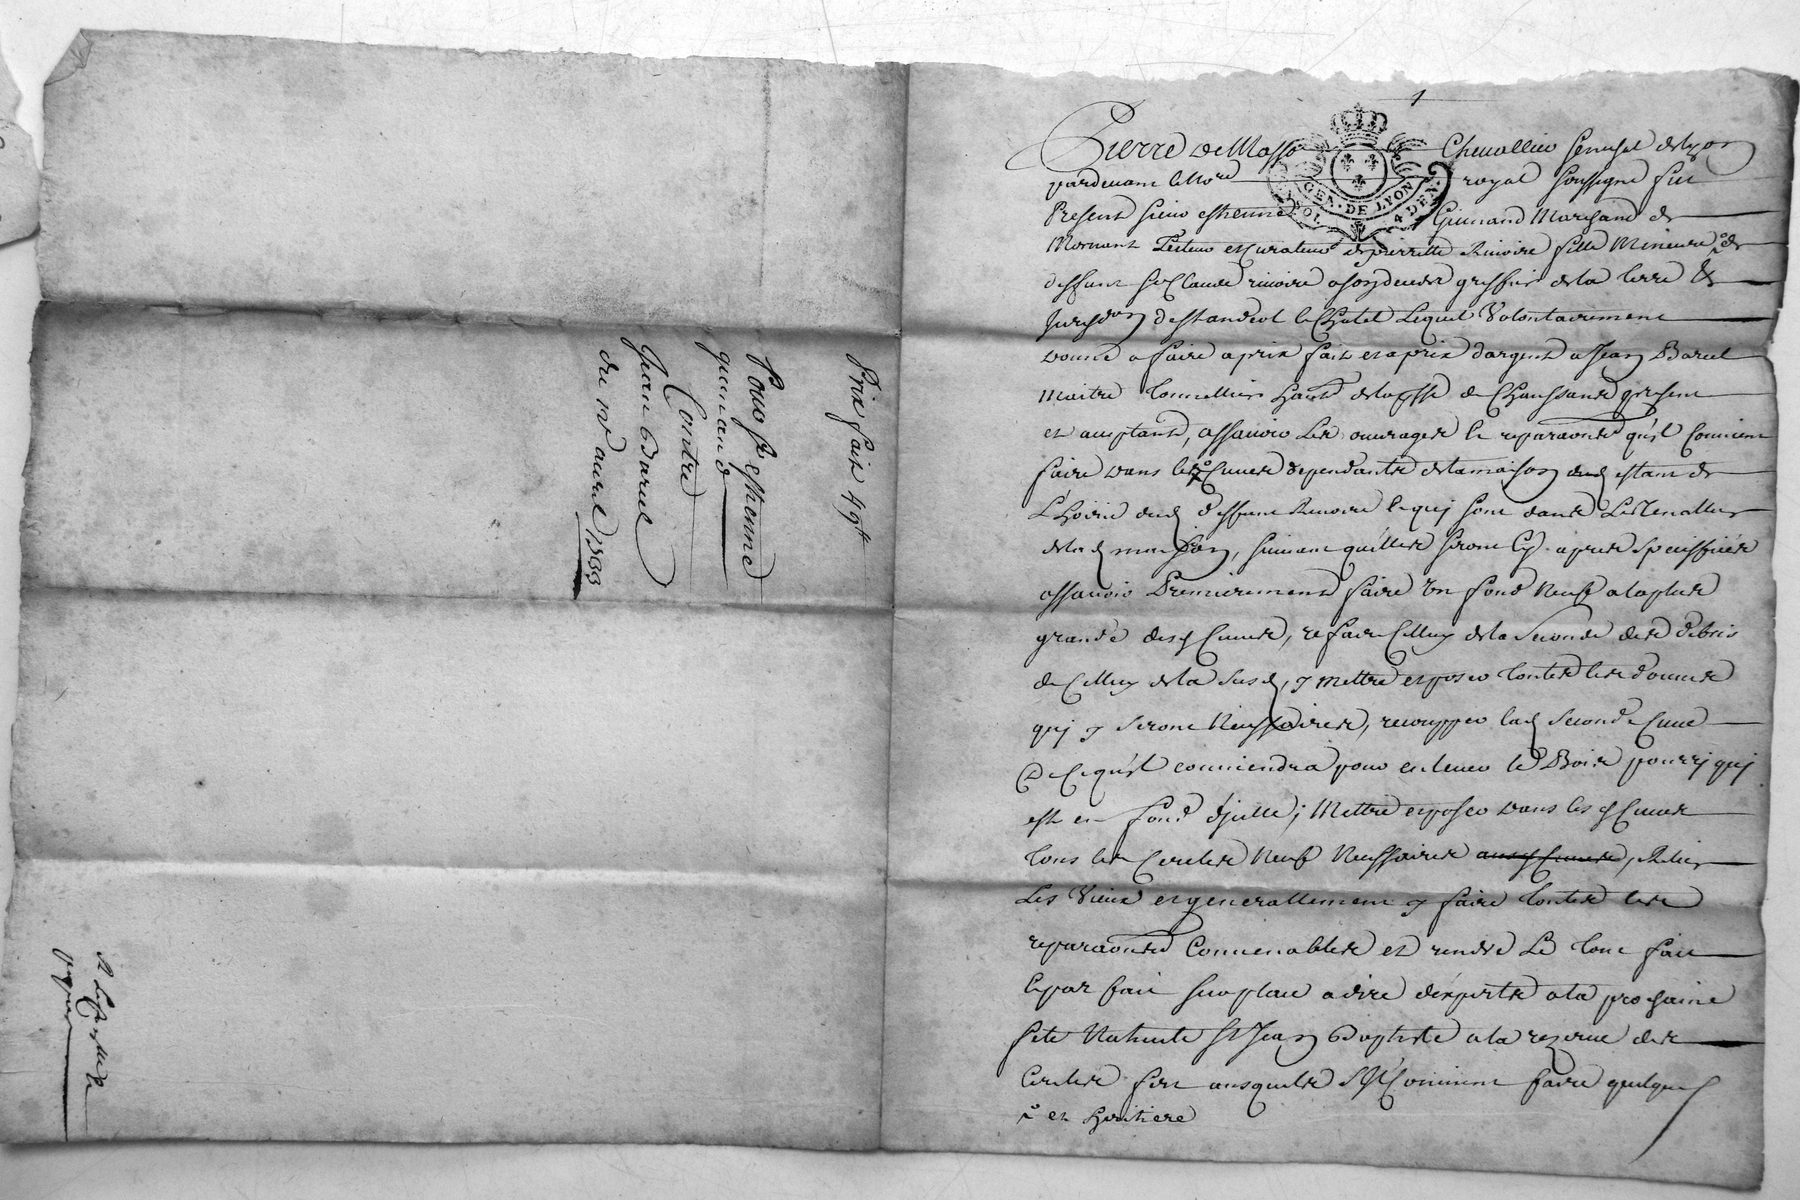 Prix fait 49tt
Pour Sr estienne
guinand
Contre
Jean Baruel
du nr avril 1733
papier
1
Pierre de Masso Chevallier senechal de lyon
pardevant le Nore royal soussigné fut
Present sieur estienne Guinand Marchand de
Mornant Tuteur et Curateur de pierrette Rivoire fille Mineure de
deffunt Sr Claude rivoire a son deceds greffier de la terre &
Jurisdon de st andeol le Chatel Lequel Volontairement
donne a faire a prix fait et a prix dargent a Jean Baruel
maitre tonnellier habt de la psse de Chaussand present
et acceptant, assavoir les ouvrages et reparaons qu'il Convient
faire dans les Cuves dependantes de la maison estant de
L'hoirie dud deffunt Rivoire et qui sont dans Les Tenallier
de lad maison, suivant qu'elles seront Cy apres speciffiées
assavoir Premierement faire un fond Neuf a la plus
grande desd Cuves, refaire Celluy de la Seconde des debris
de Celluy de la susd, y mettre et poser toutes les douves
qui y seront Neussaires, recoupper lad Seconde Cuve
de Ce qu'il conviendra pour enlever le Bois pourry qui
est en fond d'jcelle; Mettre et poser dans lesd Cuves
tous les Cercles Neufs Neussaires ausd Cuves, Relier
Les Vieux et generallement y faire toutes les
reparaons Convenables et rendre Le tout fait
et par fait sur place a dire d'experts a la prochaine
fete Nativité St Jean Baptiste a la rezerve des
Cercles fer ausquels s'il Convient faire quelques
et heritiere
GEN. DE LYON
4 DEN.